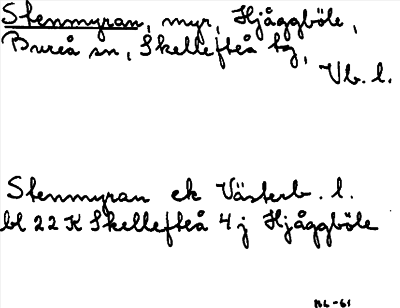 Stenmyran, myr, Hjåggböle,
Bureå sn, Skellefteå tg,
Vb. l.
Stenmyran ek Västerb. l.
bl 22 K Skellefteå 4 j Hjåggböle